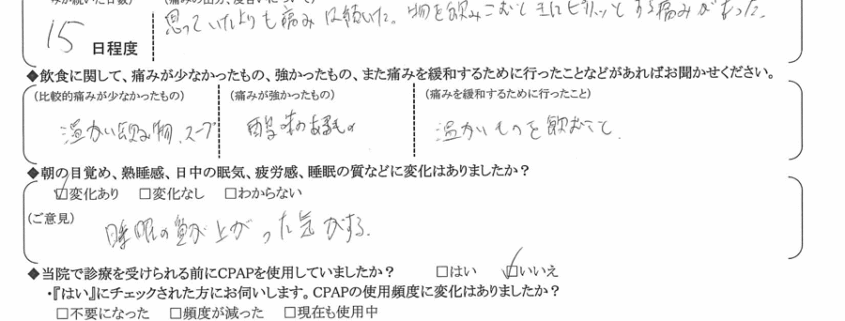 みが続いた日数) (痛みの出方、度合いについて)
15 日程度 思っていたよりも痛みは続いた。物を飲みこむと主にピリッとする痛みがあった。
◆飲食に関して、痛みが少なかったもの、強かったもの、また痛みを緩和するために行ったことなどがあればお聞かせください。
(比較的痛みが少なかったもの) (痛みが強かったもの) (痛みを緩和するために行ったこと)
温かい飲み物、スープ 酸味のあるもの 温かいものを飲むこと。
◆朝の目覚め、熟睡感、日中の眠気、疲労感、睡眠の質などに変化はありましたか?
☑変化あり □変化なし □わからない
(ご意見)
睡眠の質が上がった気がする。
◆当院で診療を受けられる前にCPAPを使用していましたか? □はい ☑いいえ
・『はい』にチェックされた方にお伺いします。CPAPの使用頻度に変化はありましたか?
□不要になった □頻度が減った □現在も使用中